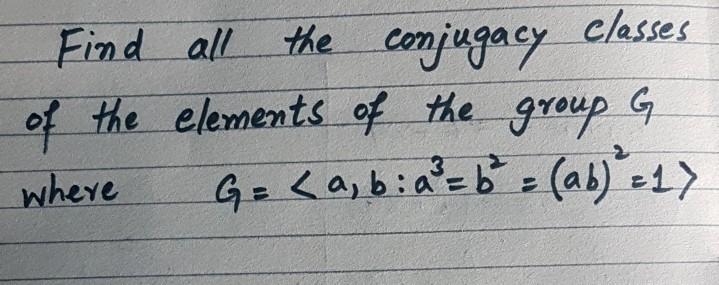 Find all the conjugacy classes
of the elements of the group G
where G = < a, b : a³ = b² = (ab)² = 1 >